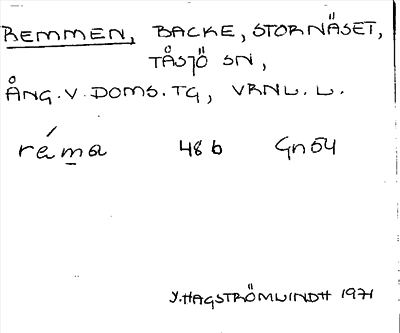 REMMEN, BACKE, STORNÄSET,
TÅSJÖ SN,
ÅNG.V.DOMS.TG, VRNL.L.
réma 48 b Gn54
Y.HAGSTRÖMLINDH 1971